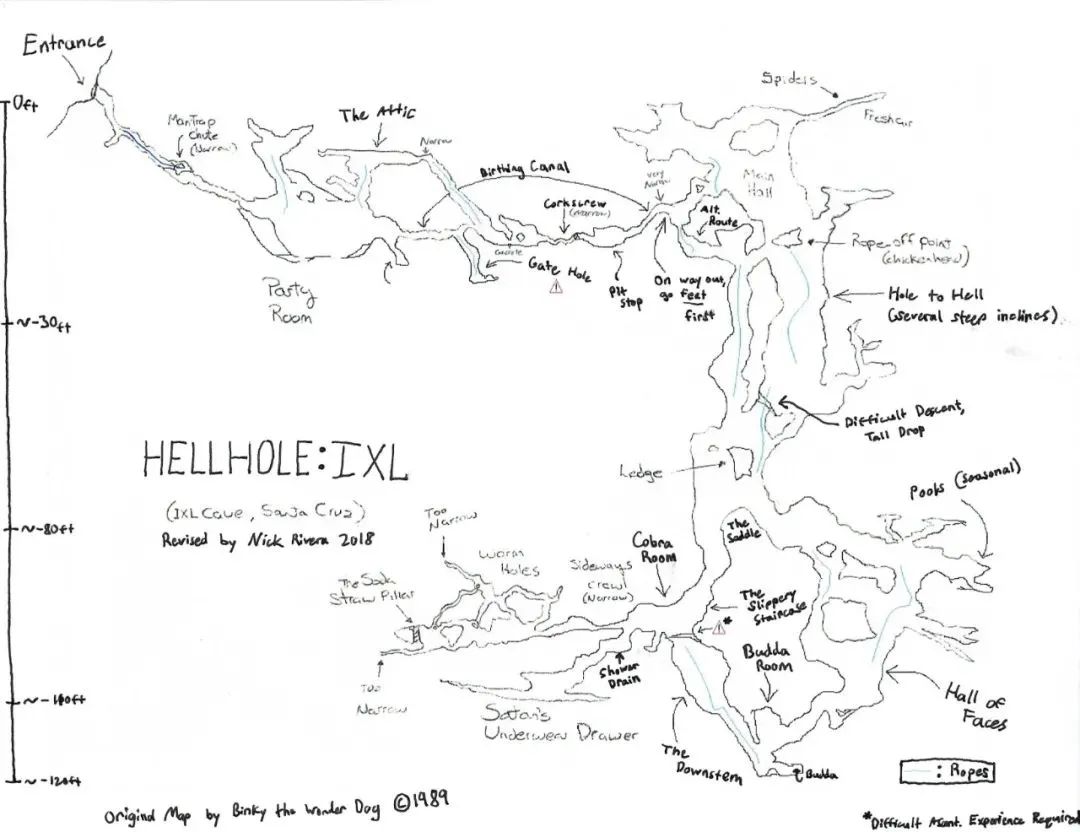 Entrance
0ft
ManTrap
Chute
(Narrow)
The Attic
Narrow
Birthing Canal
Corkscrew
(Narrow)
very
Narrow
Spiders
Fresh air
Main
Hall
Alt.
Route
Rope off point
(chickenhead)
Gate Hole
Pit
Stop
On way out,
go feet
first
Hole to Hell
(several steep inclines)
Party
Room
~-30ft
Difficult Descent,
Tall Drop
HELLHOLE: IXL
(IXL Cave, Santa Cruz)
Revised by Nick Rivera 2018
Ledge
Pools (seasonal)
~-80ft
Too
Narrow
Worm
Holes
Sideways
Crawl
(Narrow)
Cobra
Room
The
Saddle
The Soda
Straw Pillar
The
Slippery
Staircase
*
Budda
Room
Shower
Drain
Too
Narrow
~-100ft
Satan's
Underwear Drawer
Hall of
Faces
The
Downstem
Budda
: Ropes
~-120ft
Original Map by Binky the Wonder Dog ©1989
*Difficult Ascent. Experience Required